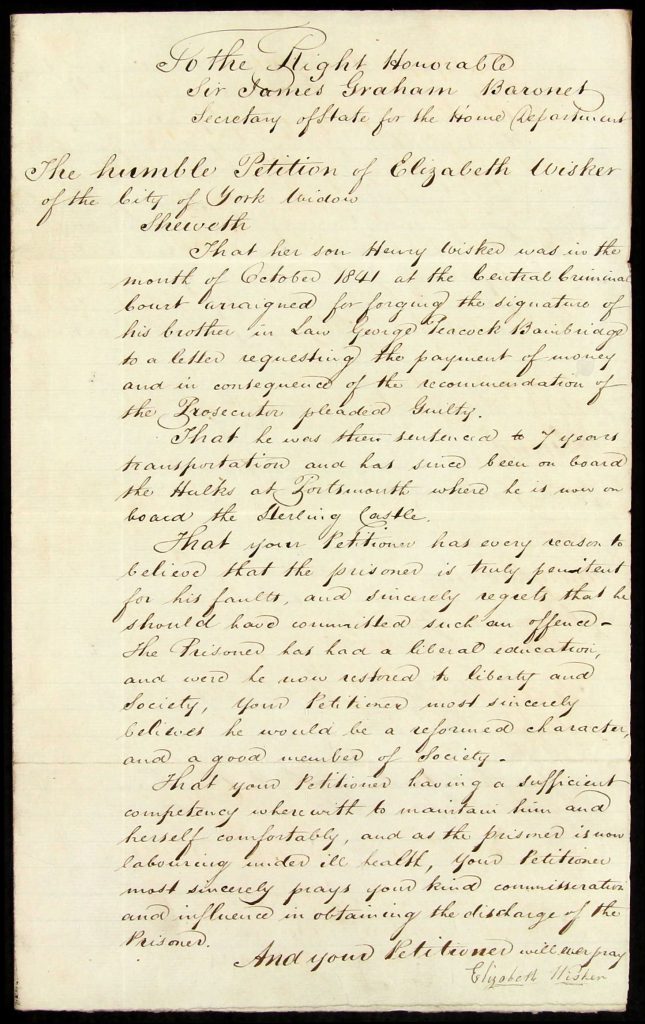 To the Right Honorable
Sir James Graham Baronet
Secretary of State for the Home Department
The humble Petition of Elizabeth Wisker
of the City of York Widow
Sheweth
That her son Henry Wisker was in the
month of October 1841 at the Central Criminal
Court arraigned for forging the signature of
his brother in Law George Peacock Bainbridge
to a letter requesting the payment of money
and in consequence of the recommendation of
the Prosecutor pleaded Guilty.
That he was then sentenced to 7 years
transportation and has since been on board
the Hulks at Portsmouth where he is now on
board the Sterling Castle.
That your Petitioner has every reason to
believe that the prisoner is truly penitent
for his faults, and sincerely regrets that he
should have committed such an offence -
The Prisoner has had a liberal education,
and were he now restored to liberty and
Society, your Petitioner most sincerely
believes he would be a reformed character,
and a good member of Society -
That your Petitioner having a sufficient
competency wherewith to maintain him and
herself comfortably, and as the prisoner is now
labouring under ill health, your Petitioner
most sincerely prays your kind commisseration
and influence in obtaining the discharge of the
Prisoner.
And your Petitioner will ever pray
Elizabeth Wisker